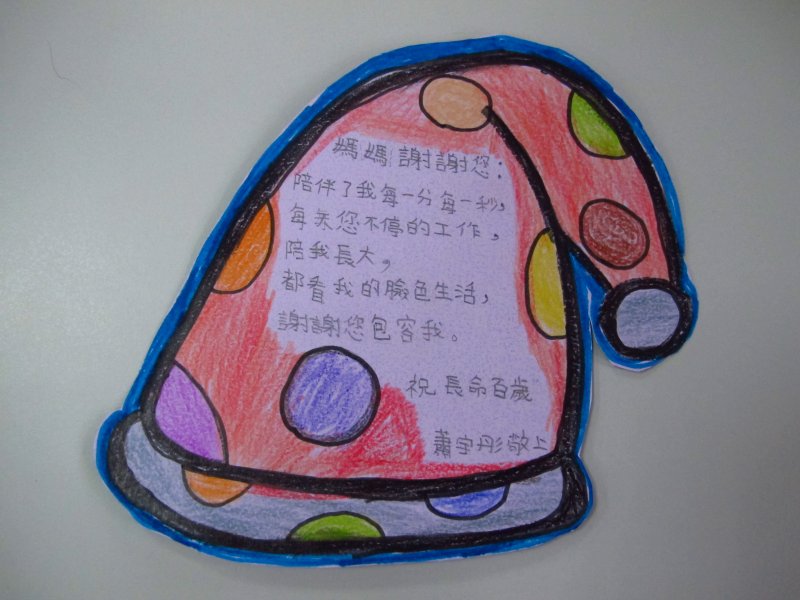 媽媽謝謝您:
陪伴了我每一分每一秒,
每天您不停的工作,
陪我長大,
都看我的臉色生活,
謝謝您包容我。
祝長命百歲
蕭宇彤敬上